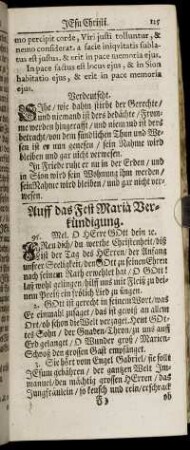 JEsu Christi. 125
mo percipit corde, Viri justi tolluntur, &
nemo considerat. a facie iniquitatis subla-
tus est justus, & erit in pace memoria ejus.
In pace factus est locus ejus, & in Sion
habitatio ejus, & erit in pace memoria
ejus.
Verdeutscht.
SIhe, wie dahin stirbt der Gerechte/
und niemand ist ders bedachte/ From-
me werden hingerafft/ und niemand ist der
betracht/ von den sündlichen Thun und We-
sen ist er nun genesen/ sein Nahme wird
bleiben und gar nicht verwesen.
In Friede ruht er nu in der Erden/ und
in Sion wird sein Wohnung ihm werden/
sein Nahme wird bleiben/ und gar nicht ver-
wesen.
Auff das Fest Mariä Ver-
kündigung.
91. Mel. O HErr GOtt dein rc.
FReu dich/ du werthe Christenheit/ diß
ist der Tag des HErren/ der Anfang
unser Seeligkeit/ den GOtt zu seinen Ehren
nach seinem Rath erwehlet hat/ O GOtt!
laß wohl gelingen/ hilff uns mit Fleiß zu dei-
nem Preiß/ ein frölich lied zu singen.
2. GOtt ist gerecht in seinem Wort/ was
Er einmahl zusagt/ das ist gewiß an allem
Ort/ ob schon die Welt verzaget. Heut GOt-
tes Sohn/ der Gnaden-Thron/ zu uns auff
Erd gelanget/ O Wunder groß/ Marien-
Schooß den grossen Gast empfänget.
3. Sie hört vom Engel Gabriel/ sie solt
JEsum gebähren/ der gantzen Welt Im-
manuel/ den mächtig grossen HErren/ das
Jungfräulein/ so keusch und rein/ erschrackt
F 3 ob